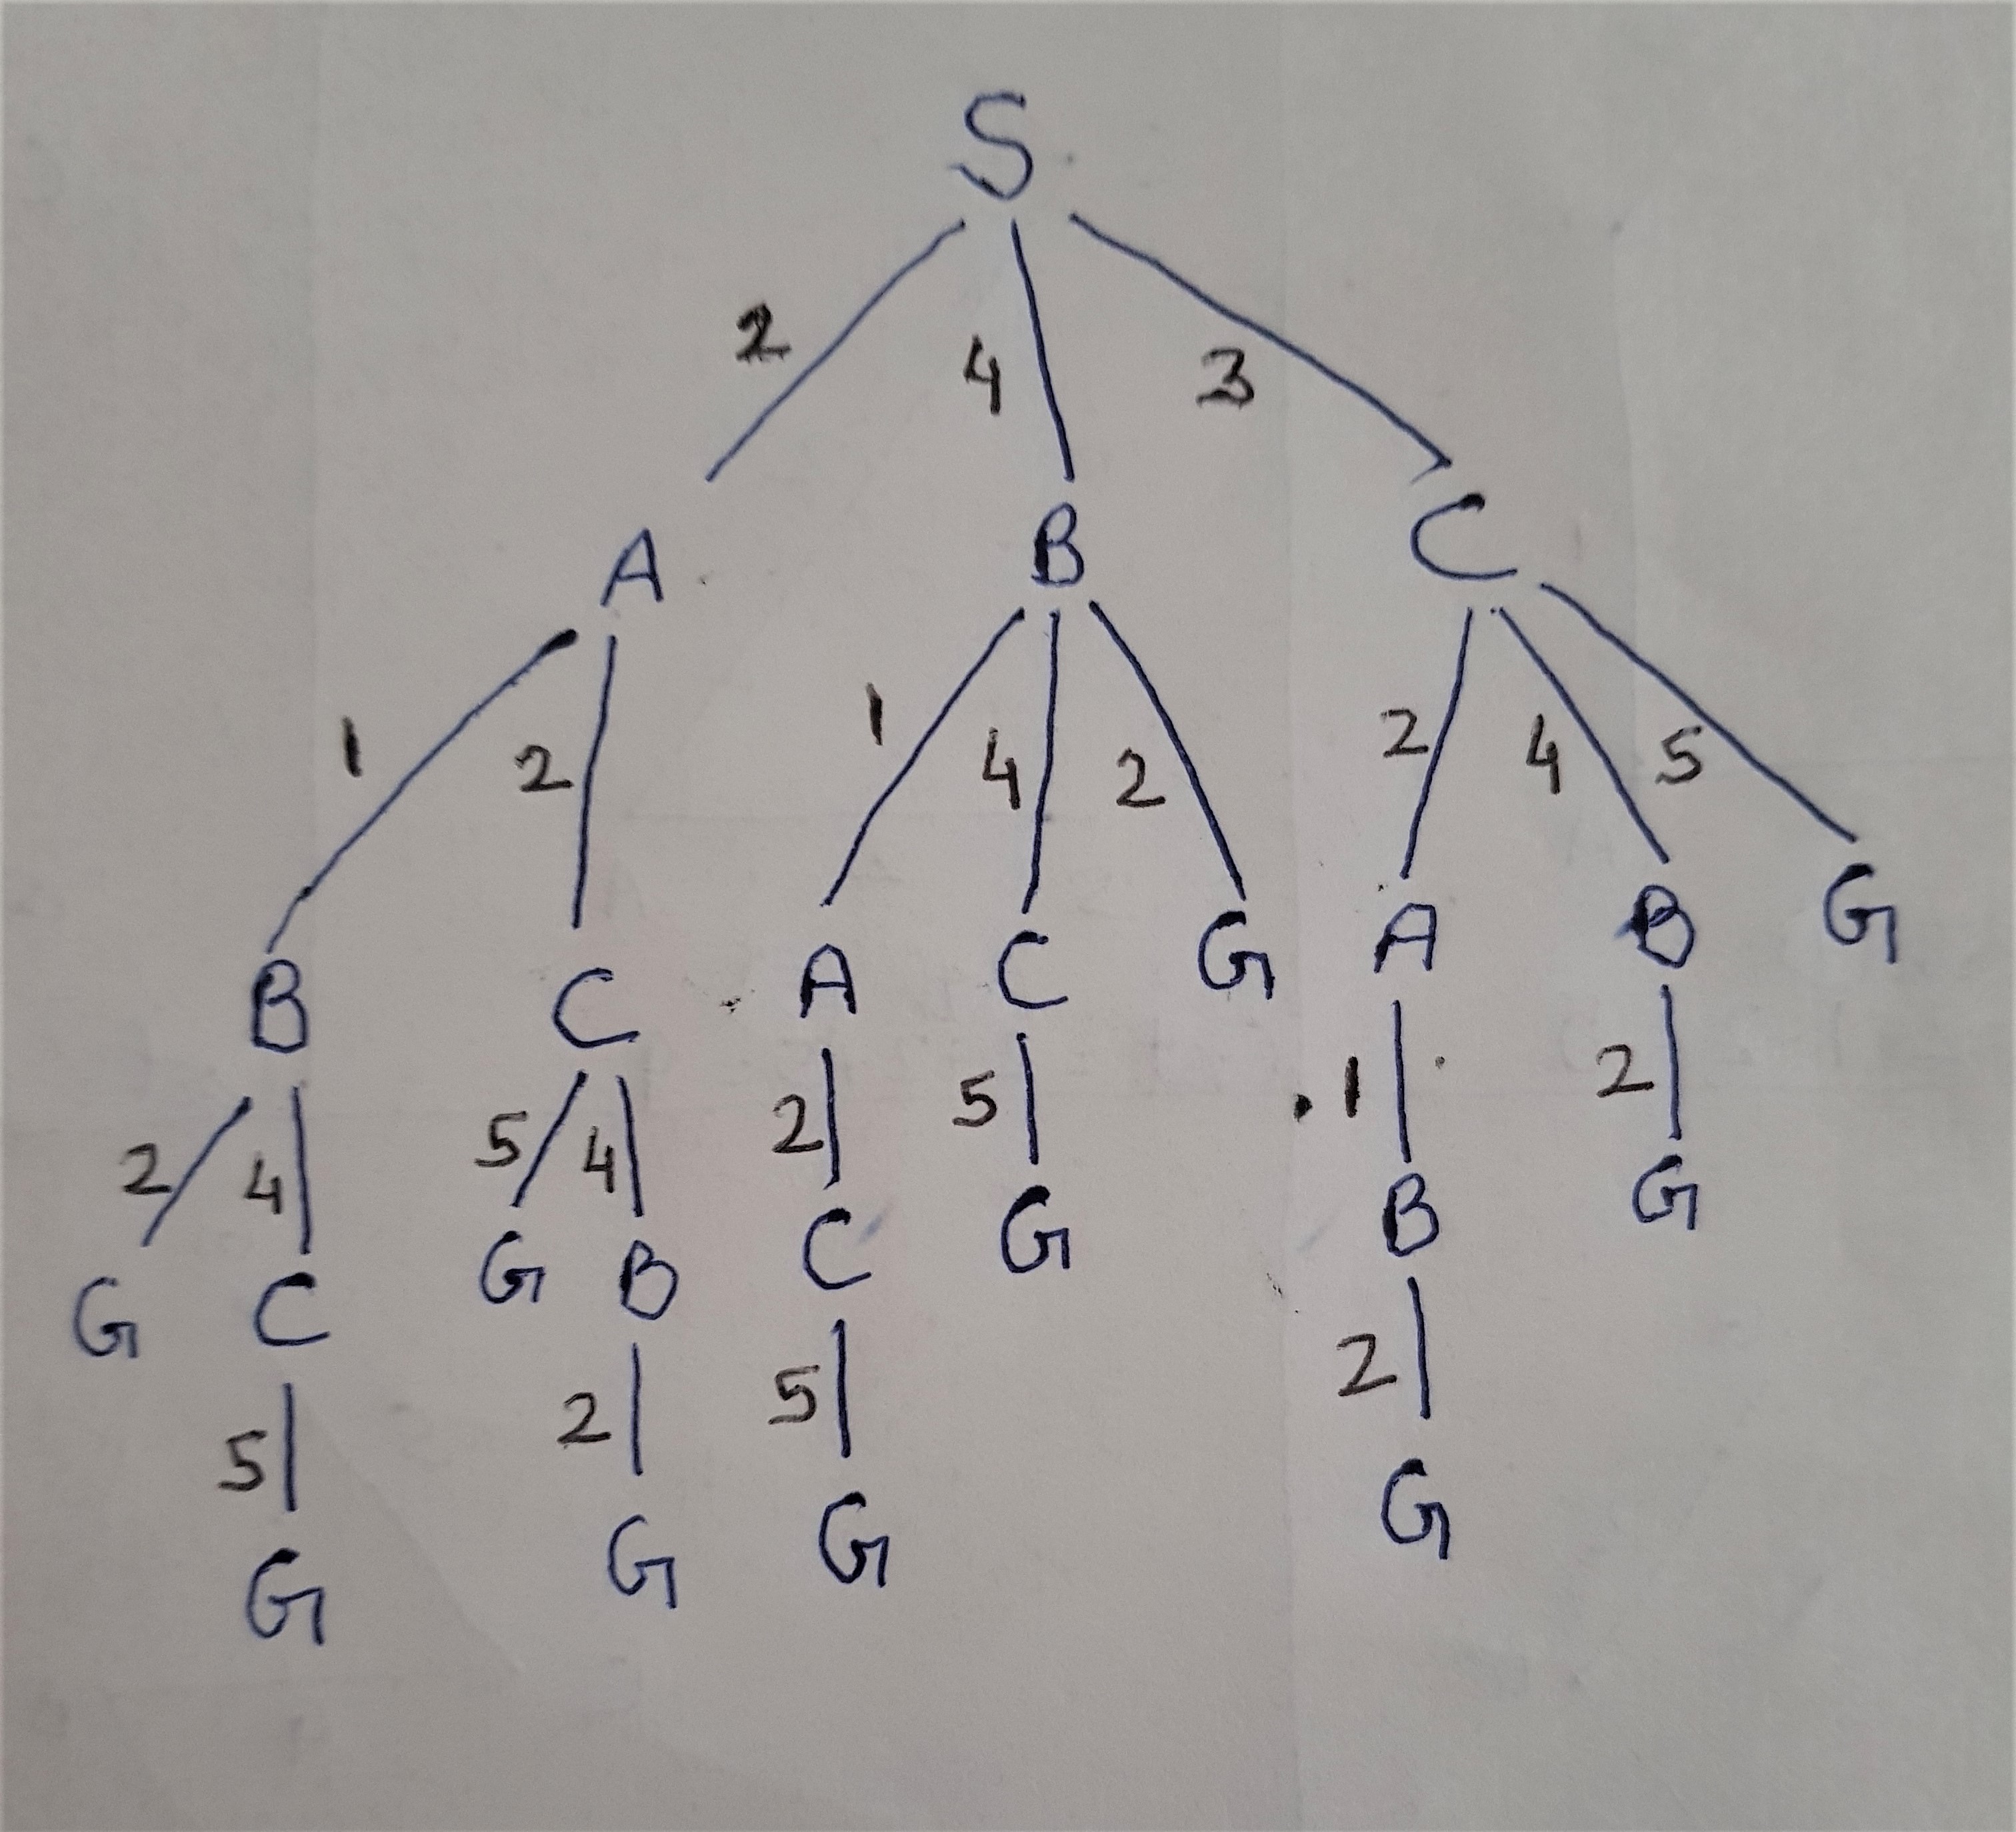 S
2 4 3
A B C
1 2 1 4 2 2 4 5
B C A C G A B G
2 4 5 4 2 5 1 2
G C G B C G B G
5 2 5 2
G G G G